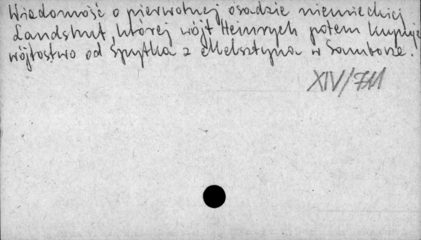 Wiadomość o pierwotnej osadzie niemieckiej
Landshut, której wójt Heinrych potem kupuje
wójtostwo od Spytka z Melsztyna w Samborze.
XIV/711